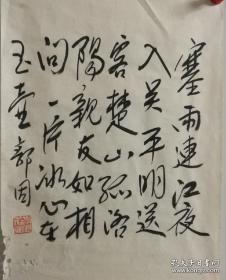 寒雨連江夜
入吴平明送
客楚山孤洛
陽親友如相
問一片冰心在
玉壶 郭因